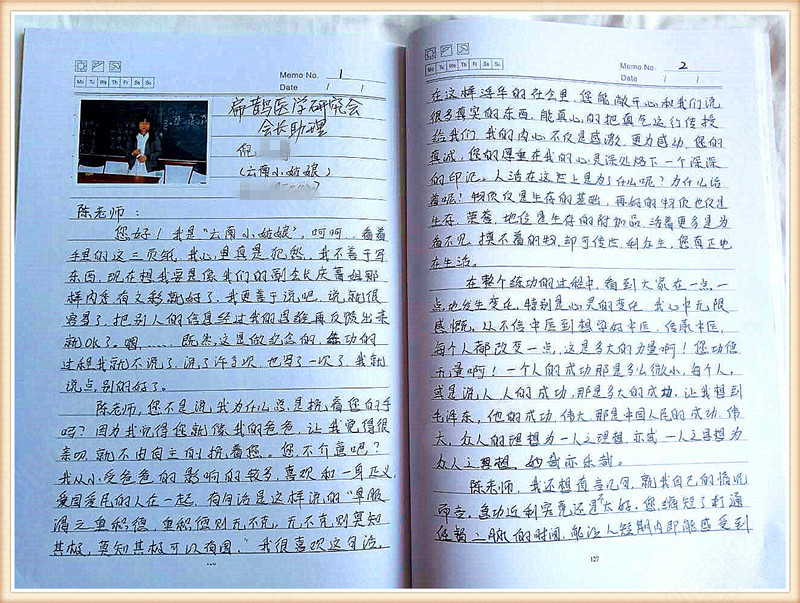 Mo Tu We Th Fr Sa Su
Memo No. 1
Date / /
扁鹊医学研究会
会长助理
倪
(云南小姑娘)
陈老师:
您好!我是"云南小姑娘",呵呵,看着
手里的这三页纸,我心里真是犯愁,我不善于写
东西,现在想我要是像我们的副会长庆蓍姐那
样内在有文彩就好了,我更善于说吧,说就很
容易了,把别人的信息经过我的思维再反馈出来
就OK了。嗯……既然这是做纪念的,练功的
过程我就不说了,说了许多次,也写了一次了,我就
说点别的好了。
陈老师,您不是说我为什么总是挽着您的手
吗?因为我觉得您就像我的爸爸,让我觉得很
亲切,就不由自主的挽着您。您不介意吧?
我从小受爸爸的影响的较多,喜欢和一身正义,
爱国爱民的人在一起,有句话是这样说的"早服
谓之重积德,重积德则无不克,无不克则莫知
其极,莫知其极可以有国。"我很喜欢这句话。
Mo Tu We Th Fr Sa Su
Memo No. 2
Date / /
在这样浮华的社会里,您能敞开心和我们说
很多真实的东西,能真心的把真气运行传授
给我们,我的内心不仅是感激,更为感动,您的
真诚,您的厚重在我的心灵深处烙下一个深深
的印记。人活在这世上是为了什么呢?为什么活
着呢?物质仅是生存的基础,再好的物质也仅是
生存,荣誉,地位是生存的附加品,活着更多是为
看不见,摸不着的物,却可传世,利众生,您真正地
在生活。
在整个练功的过程中,看到大家在一点一
点地发生变化,特别是心灵的变化,我心中无限
感慨。从不信中医到想学好中医,传承中医,
每个人都改变一点,这是多大的力量啊!您功德
无量啊!一个人的成功那是多么微小,每个人,
或是说人人的成功,那是多大的成功,让我想到
毛泽东,他的成功,伟大,那是中国人民的成功,伟
大,众人的理想为一人之理想,亦或一人之思想为
众人之理想,妙哉亦乐哉。
陈老师,我还想直言几句,就我自己的情况
而言,急功近利究竟还是不太好,您缩短了打通
任督二脉的时间,能让人短期内即能感受到
127